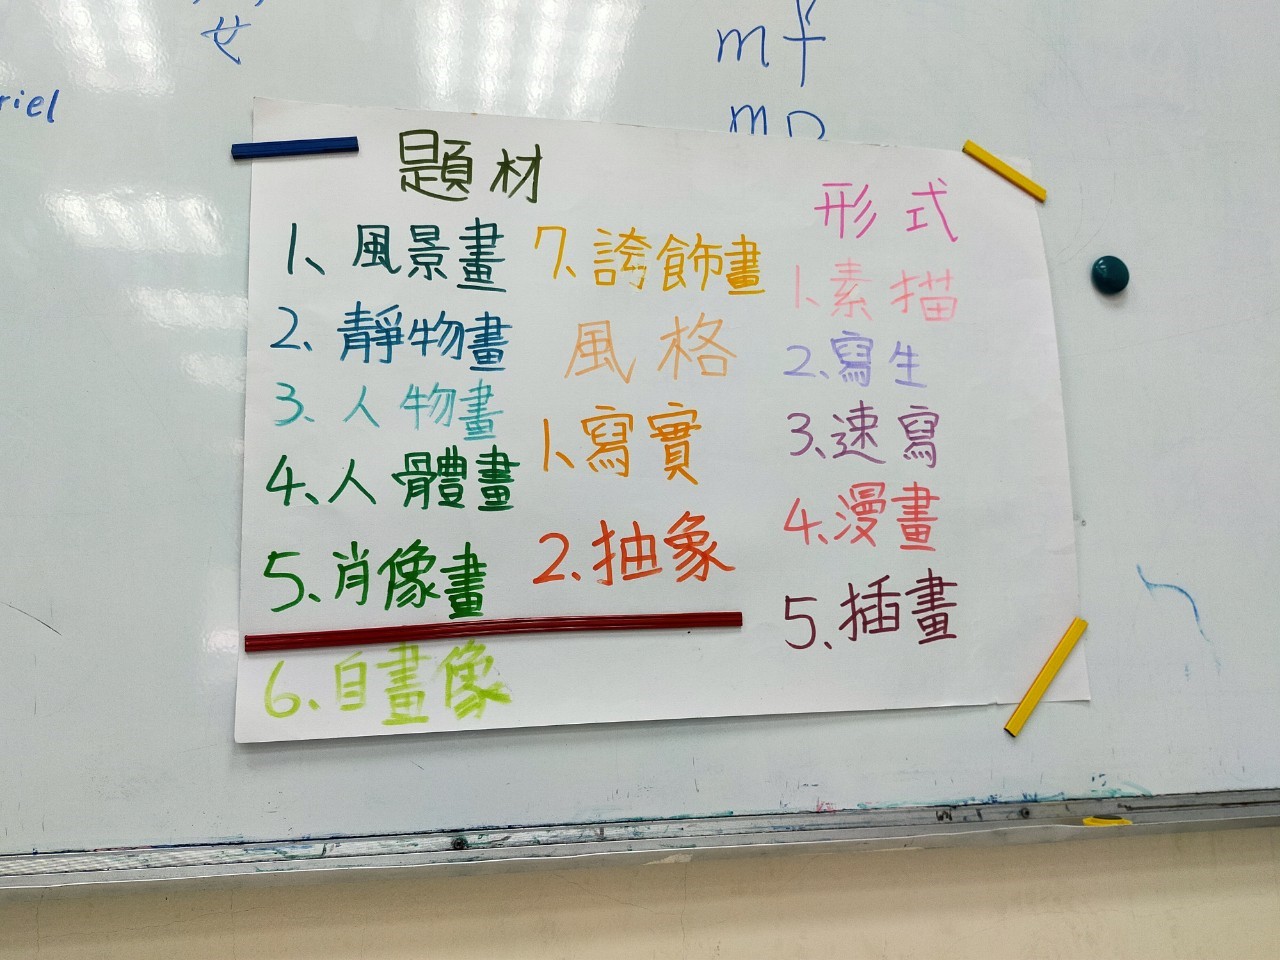 riel
mf
mp
題材
1、風景畫
2、靜物畫
3、人物畫
4、人體畫
5、肖像畫
6、自畫像
7、誇飾畫
風格
1、寫實
2、抽象
形式
1、素描
2、寫生
3、速寫
4、漫畫
5、插畫